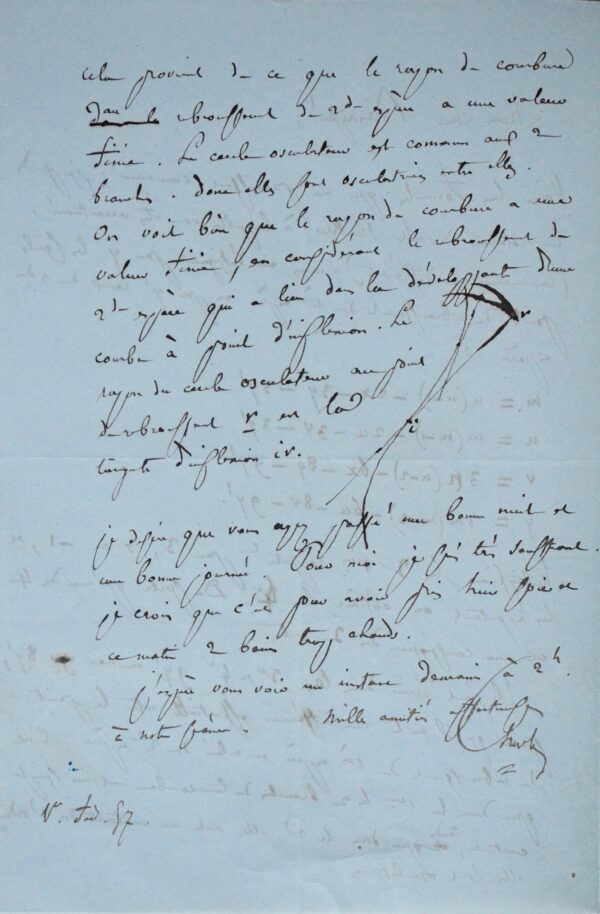 cela provient de ce que le rayon de courbure
dans le rebroussemt de 2de espèce a une valeur
finie. Le cercle osculateur est commun aux 2
branches. donc elles sont osculatrices entre elles.
On voit bien que le rayon de courbure a une
valeur finie, en considérant le rebroussemt de
2de espèce qui a lieu dans la développante d'une
courbe à point d'inflexion. Le
rayon du cercle osculateur au point
de rebroussemt r est la
tangente d'inflexion ir.
r
i
je désire que vous ayez passé une bonne nuit et
une bonne journée. Pour moi je suis très souffrant.
je crois que c'est pour avoir pris hier soir et
ce matin 2 bains trop chauds.
j'espère vous voir un instant demain à 2h.
à notre
Mille amitiés